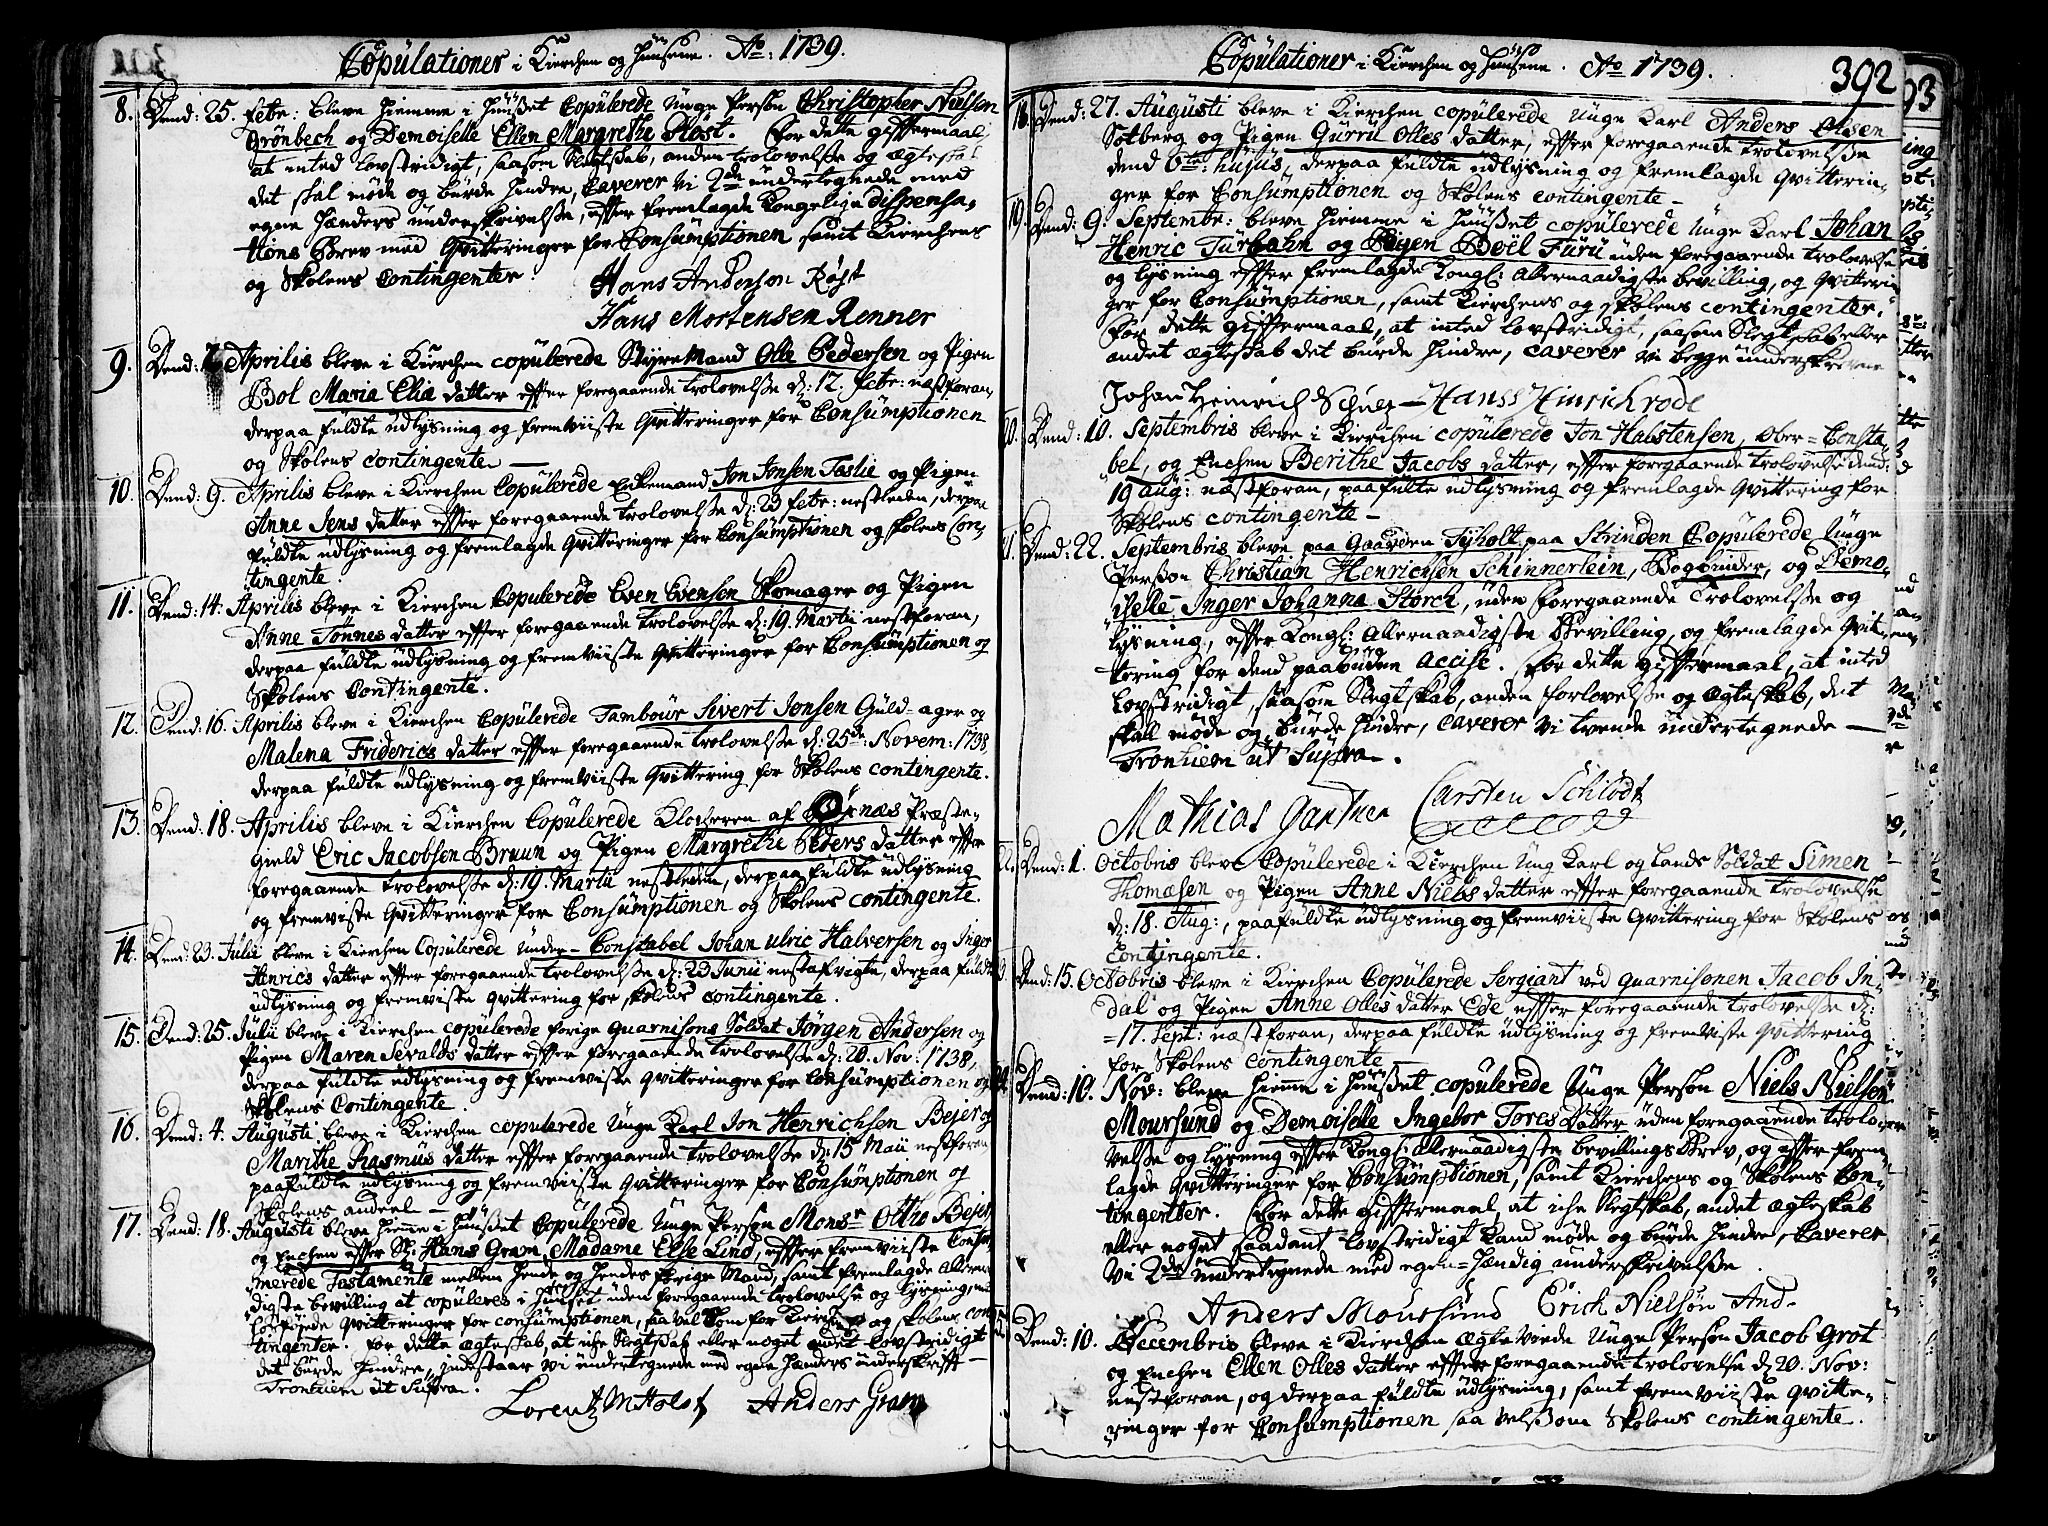 Copulationer i Kierchen og Huusene. Ao: 1739.
8. Dend: 25. Febr: bleve hiemme i Huuset Copulerede Unge Person Christopher Nielsen
Grønbech og Demoiselle Ellen Margrethe Røst. For dette gifftermaal
at inted lovstridigt, saasom Slegtskab, anden trolovelsse og ægteskab
det skal møde og burde hindre, Caverer vi 2de undertegnede med
egne Hænders underskrivelsse, effter fremlagde Kongelige dispensa-
tions Brev med Qvitteringer for Consumptionen samt Kierchens
og Skolens Contingenter.
Hans Andersen Røst
Hans Mortensen Renner
9. Dend: Aprilis bleve i Kierchen copulerede Styremand Olle Pedersen og Pigen
Bol Maria Eliæ datter effter foregaaende trolovelsse d: 12. Febr: næstforan,
derpaa fuldte udlysning og fremviiste Qvitteringer for Consumptionen
og Skolens contingente —
10. Dend: 9. Aprilis bleve i Kierchen Copulerede Enkemand Jon Jonsen Taslie og Pigen
Anne Jens datter effter foregaaende trolovelsse d: 23 Febr: nestleden, derpaa
fuldte udlysning og fremlagde Qvitteringer for Consumptionen og Skolens Con-
tingente.
11. Dend: 14. Aprilis bleve i Kierchen Copulerede Even Evensen Skomager og Pigen
Anne Tønnes datter effter foregaaende trolovelsse d: 19. Martii nestforan,
derpaa fuldte udlysning og fremviiste Qvitteringer for Consumptionen og
Skolens Contingente.
12. Dend: 16. Aprilis bleve i Kierchen Copulerede Tambour Sivert Jonsen Guld-ager og
Malena Friderics datter effter foregaaende trolovelsse d: 25de Novem: 1738,
derpaa fuldte udlysning og fremviiste Qvittering for Skolens contingente.
13. Dend: 18. Aprilis bleve i Kierchen Copulerede Klocheren af Ørnæs Præste-
gield Eric Jacobsen Bruun og Pigen Margrethe Peders datter effter
foregaaende trolovelsse d: 19. Martii nestleden, derpaa fuldte udlysning
og fremviste Qvitteringer for Consumptionen og Skolens contingente.
14. Dend: 23. Julii bleve i Kierchen Copulerede Under-Constabel Johan Ulric Halversen og Inger
Henrics datter effter foregaaende trolovelsse d: 23 Junii nestafvigte, derpaa fuldte
udlysning og fremviste Qvittering for Skolens contingente.
15. Dend: 25. Julii bleve i Kierchen copulerede forige Quarnisons Soldat Jørgen Andersen og
Pigen Maren Sevalds datter effter foregaaende trolovelsse d: 20. Nov: 1738,
derpaa fuldte udlysning og fremviste Qvitteringer for Consumptionen og
Skolens Contingente.
16. Dend: 4. Augusti bleve i Kierchen copulerede Unge Karl Jon Henrichsen Bejer og
Marithe Rasmus datter effter foregaaende trolovelsse d: 15 Maii nestforan
paafuldte udlysning og fremviiste Qvitteringer for Consumptionen og
Skolens andeel —
17. Dend: 18. Augusti bleve hiemme i Huuset Copulerede Unge Person Monsr Ottho Bejer
og Enchen effter Sl: Hans Gram, Madame Else Lind, effter fremviiste Confir-
merede Testamente mellem hende og hendes forige Mand, samt fremlagde Allern
digste bevilling at copuleres i Huuset uden foregaaende trolovelsse og lysning, med
Qvitteringer for consumptionen, saa vel som for Kierchens og Skolens con-
tingenter. For dette ægteskab, at iche Slegtskab eller noget andet lovstridigt
det burde hindre, indestaar vi undertegnede med egne hænders underskrifft —
Tronhiem ut Supra.
Lorentz M Holst Anders Gram
Copulationer i Kierchen og Huusene. Ao 1739.
392
18. Dend: 27. Augusti bleve i Kierchen copulerede Unge Karl Anders Olsen
Solberg og Pigen Gurru Olles datter, effter foregaaende trolovelsse
dend 6te hujus, derpaa fuldte udlysning og fremlagde Qvitterin-
ger for Consumptionen og Skolens contingente —
19. Dend: 9. Septembr: bleve hiemme i Huuset copulerede Unge Karl Johan
Henric Turbahn og Pigen Boël Furu uden foregaaende trolovelse
og lysning effter fremlagde Kongl: Allernaadigste bevilling, og Qvitterin
ger for Consumptionen, samt Kierchens og Skolens contingenter.
For dette gifftermaal, at inted lovstridigt, saasom Slegtskab eller
andet ægteskab det burde hindre, caverer vi begge underskrevne
Johan Heinrich Schulz — Hanss Hinrich rode
20. Dend: 10. Septembris bleve i Kierchen copulerede Jon Halstensen, Ober-Consta
bel, og Enchen Berithe Jacobs datter, effter foregaaende trolovelse dend:
19 Aug: næstforan, paafulte udlysning og fremlagde Qvittering for
Skolens contingente —
21. Dend: 22. Septembris bleve paa Gaarden Tyholt paa Strinden Copulerede Unge
Person Christian Henrichsen Schinnerlein, Bogbinder, og Demo-
iselle Inger Johanna Storch, uden foregaaende Trolovelsse og
lysning, effter Kongl: Allernaadigste Bevilling, og fremlagde Qvit-
tering for dend paabuden Accise. For dette gifftermaal, at inted
lovstridigt, saasom Slegtskab, anden forlovelsse og ægteskab, det
skall møde og burde hindre, caverer vi tvende undertegnede —
Tronhiem ut Supra.
Mathias Gantner Carsten Schiødt
Dend: 1. Octobris bleve Copulerede i Kierchen Ung Karl og Lands Soldat Simen
Thomasen og Pigen Anne Niels datter effter foregaaende trolovelse
d: 18. Aug:, paafuldte udlysning og fremviiste Qvittering for Skolens
Contingente.
Dend: 15. Octobris bleve i Kierchen Copulerede Sergiant ved Quarnisonen Jacob In-
dal og Pigen Anne Olles datter Ede effter foregaaende trolovelsse d:
17. Sept: næstforan, derpaa fuldte udlysning og fremviste Qvittering
for Skolens contingente —
Dend: 10. Nov: bleve hiemme i Huuset copulerede Unge Person Niels Nielsen
Moursund og Demoiselle Ingebor Tores Datter uden foregaaende trolo-
velsse og lysning effter Kongl: allernaadigste bevillings Brev, og effter frem
lagde Qvitteringer for Consumptionen, samt Kierchens og Skolens Con-
tingenter. For dette gifftermaal, at iche Slegtskab, andet ægteskab
eller noget saadant lovstridigt kand møde og burde hindre, Caverer
vi 2de undertegnede med egen-hændig underskrivelsse.
Anders Moursund Erich Nielsøn And-
Dend: 10. Decembris bleve i Kierchen ægteviede Unge Person Jacob Grot
og Enchen Ellen Olles datter effter foregaaende trolovelse d 20. Nov:
nestforan, og derpaa fuldte udlysning, samt fremviiste Qvitte-
ringer for Consumptionen saa velsom Skolens contingente.